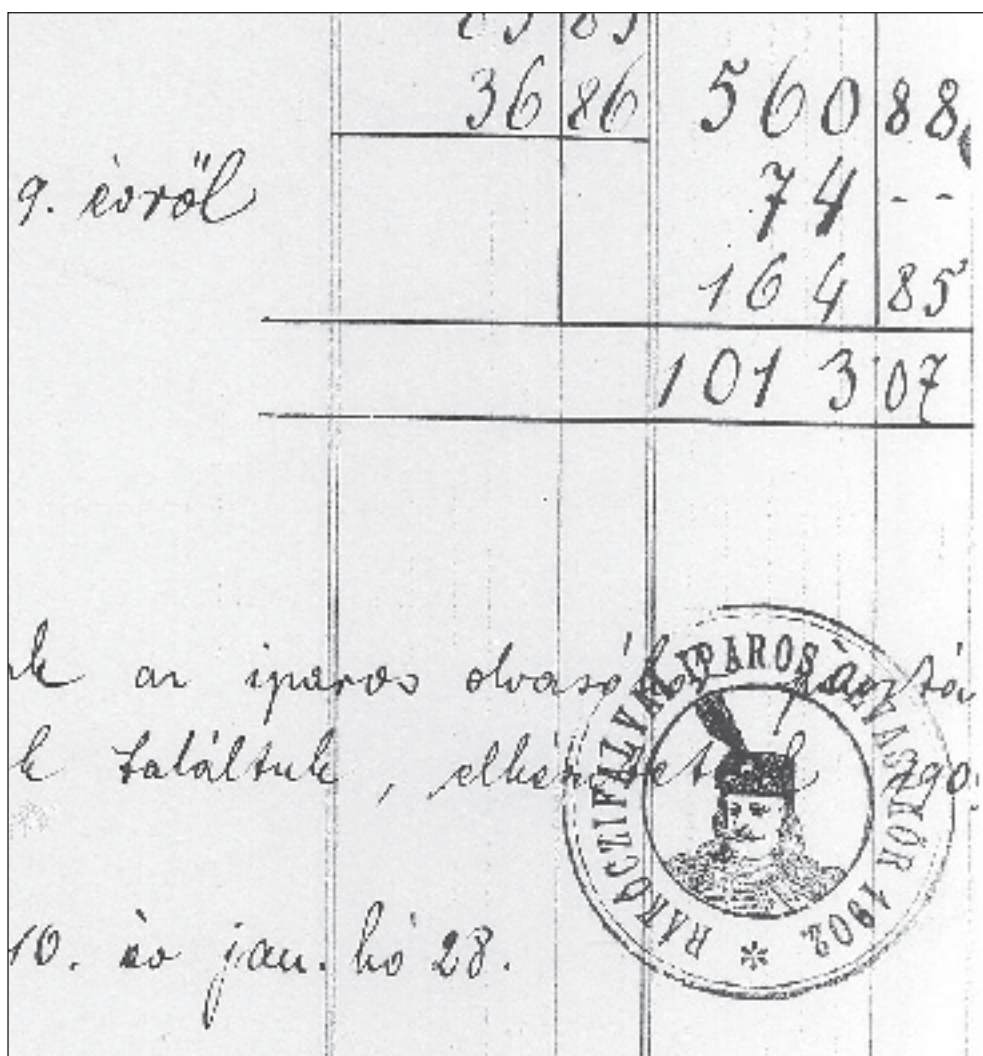 36 86 560 88
9. évről 74 - -
164 85
1013 07
az iparos olvasó
találtuk,
10. év jan. hó 28.
RÁKÓCZIFALVAI IPAROS OLVASÓKÖR 1902 *